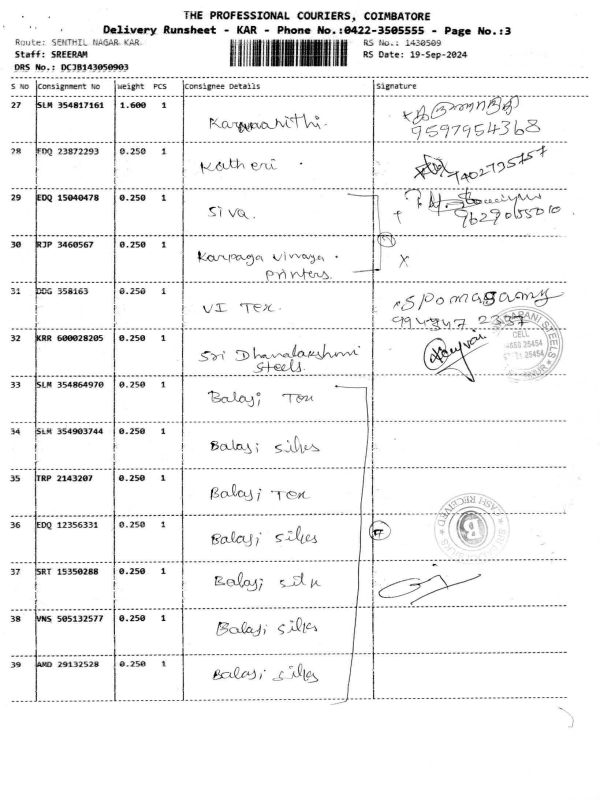 THE PROFESSIONAL COURIERS, COIMBATORE
Delivery Runsheet - KAR - Phone No.:0422-3505555 - Page No.:3
Route: SENTHIL NAGAR KAR RS No.: 1430509
Staff: SREERAM RS Date: 19-Sep-2024
DRS No.: DCJB143050903
S No Consignment No Weight PCS Consignee Details Signature
27 SLM 354817161 1.600 1
9597954368
28 EDQ 23872293 0.250 1 Katheri
7402735757
29 EDQ 15040478 0.250 1 Siva.
9629055010
30 RJP 3460567 0.250 1 Karpaga Vinaya
printers. X
31 DDG 358163 0.250 1 VI Tex. S Pomagamy
994347 2337
32 KRR 600028205 0.250 1 Sri Dhanalakshmi
Steels.
STEELS
CELL
25454
33 SLM 354864970 0.250 1 Balaji Tex
34 SLM 354903744 0.250 1 Balaji Silks
35 TRP 2143207 0.250 1 Balaji Tex
36 EDQ 12356331 0.250 1 Balaji Silks
CASH RECEIVED
B
37 SRT 15350288 0.250 1 Balaji Silk
38 VNS 505132577 0.250 1 Balaji Silks
39 AMD 29132528 0.250 1 Balaji Silks